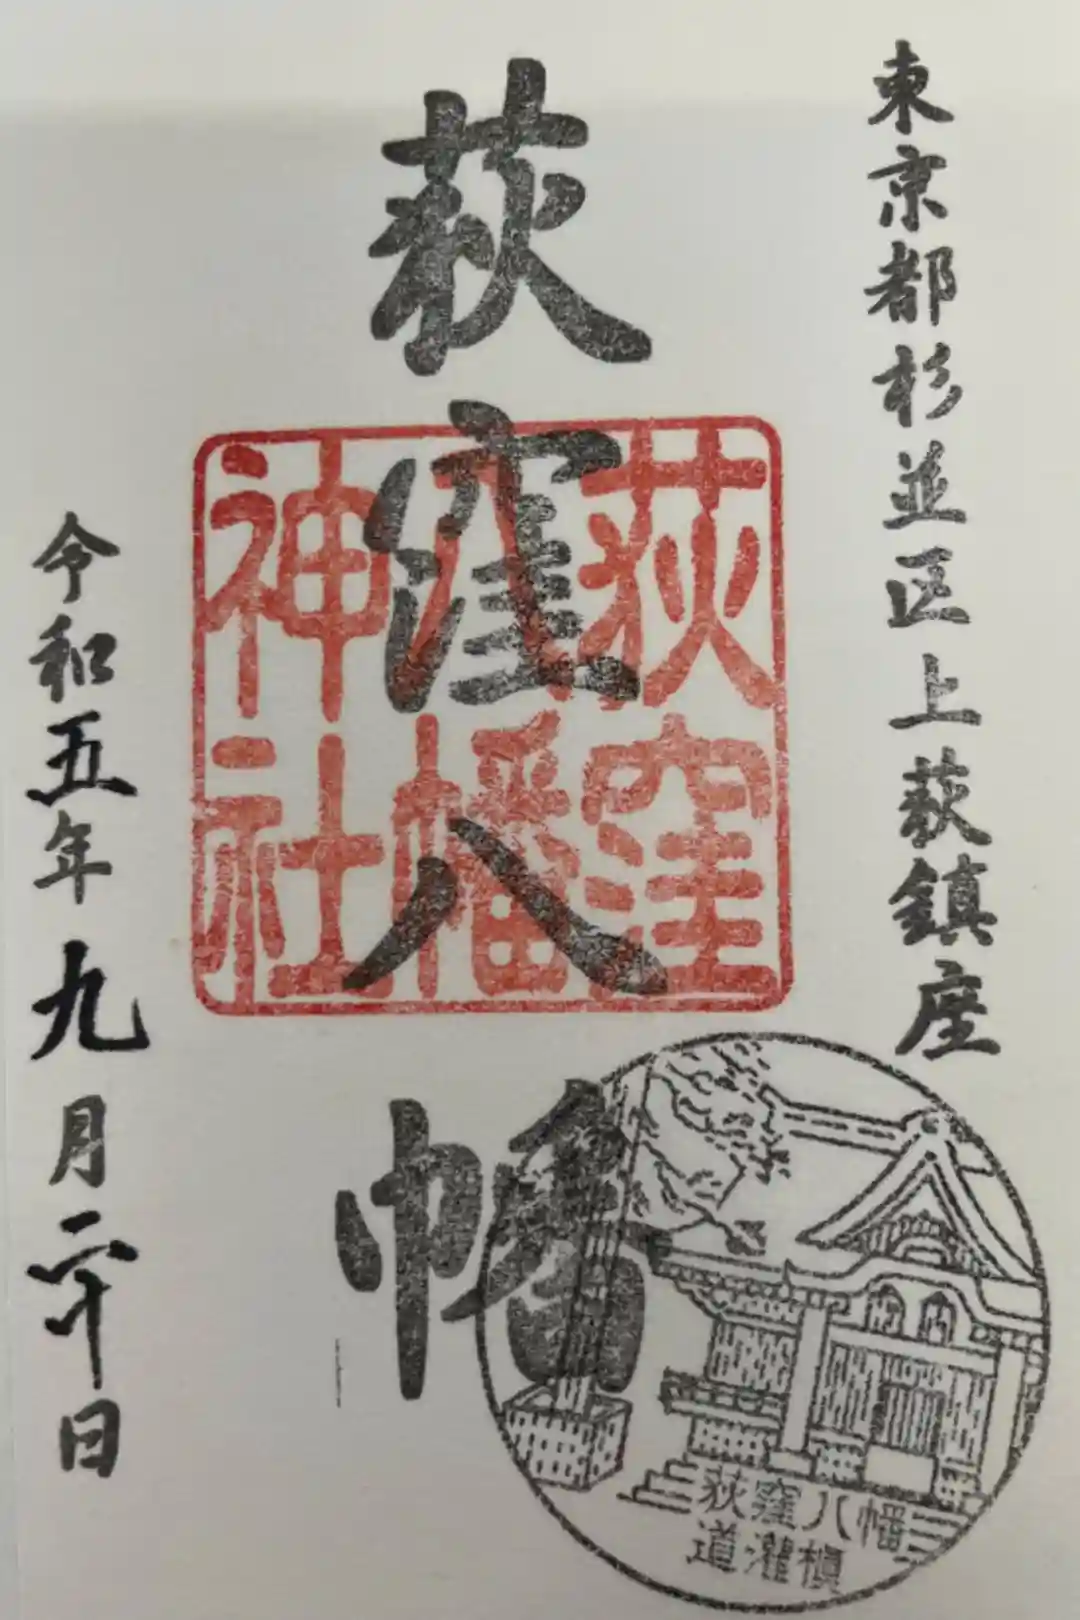 東京都杉並区上荻鎮座
荻窪八幡
荻窪
八幡
神社
荻窪八幡
道灌槙
令和五年九月二十日